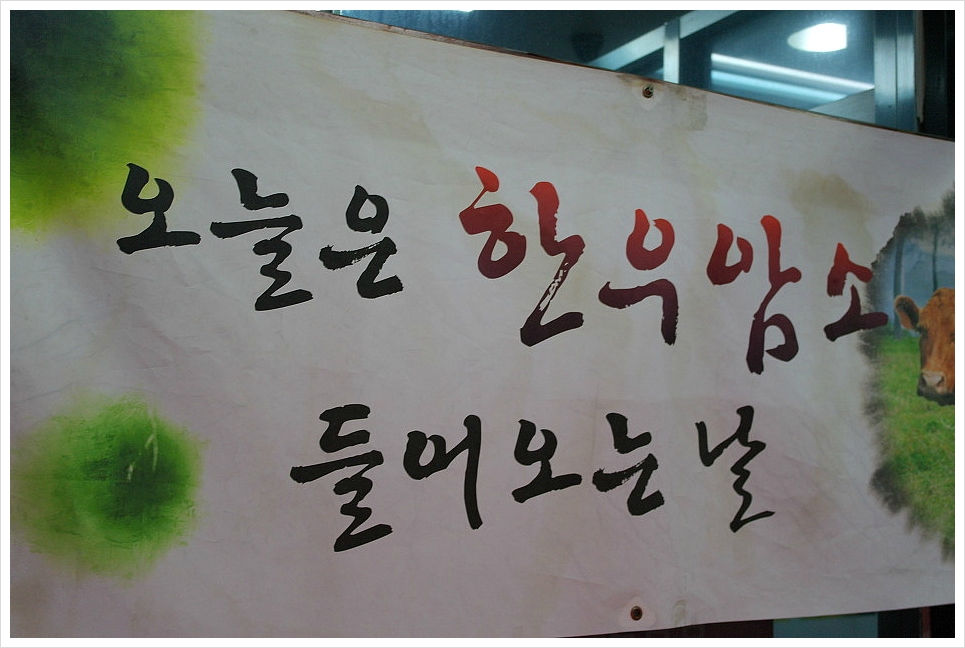 오늘은 한우암소
들어오는날